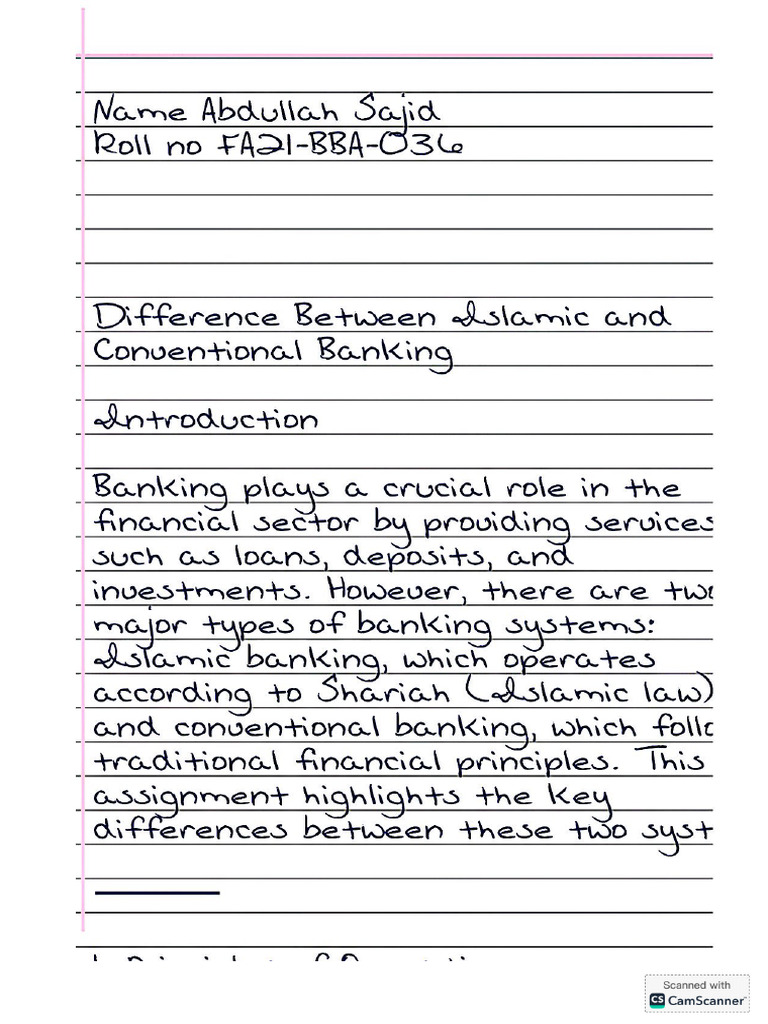 Name Abdullah Sajid
Roll no FA21-BBA-036
Difference Between Islamic and
Conventional Banking
Introduction
Banking plays a crucial role in the
financial sector by providing services
such as loans, deposits, and
investments. However, there are two
major types of banking systems:
Islamic banking, which operates
according to Shariah (Islamic law)
and conventional banking, which follo
traditional financial principles. This
assignment highlights the key
differences between these two syst
Scanned with
CS CamScanner